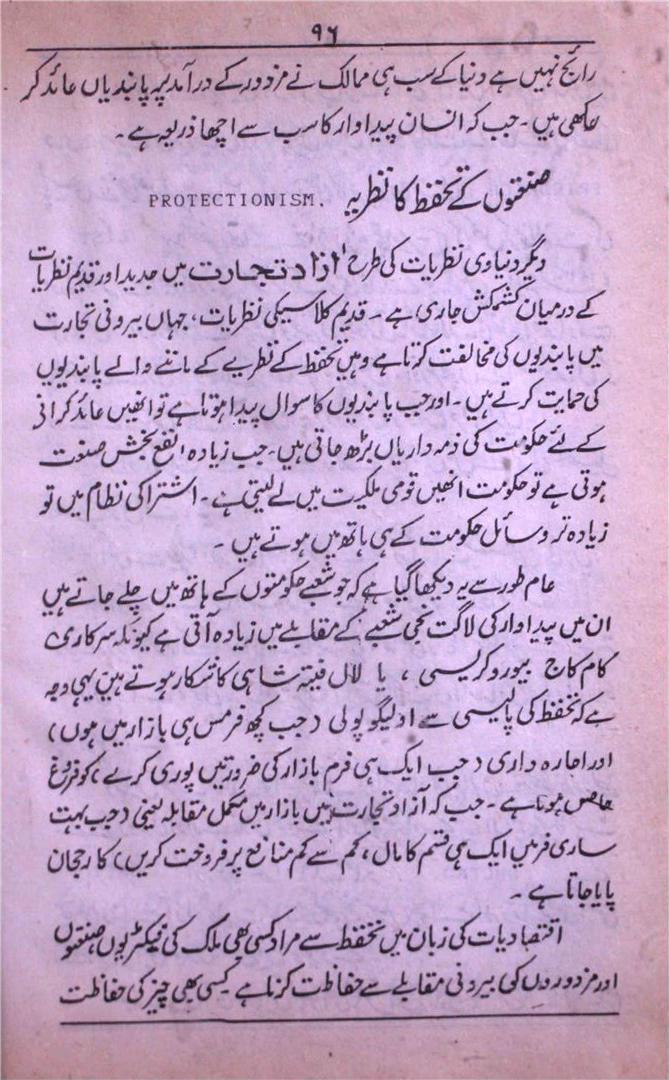 ۹۶
رائج نہیں ہے دنیا کے سب ہی ممالک نے مزدور کے درآمد پر پابندیاں عائد کر
رکھی ہیں۔ جب کہ انسان پیداوار کا سب سے اچھا ذریعہ ہے۔
صنعتوں کے تحفظ کا نظریہ PROTECTIONISM.
دیگر دنیاوی نظریات کی طرح آزاد تجارت میں جدید اور قدیم نظریات
کے درمیان کشمکش جاری ہے۔ قدیم کلاسیکی نظریات، جہاں بیرونی تجارت
میں پابندیوں کی مخالفت کرتا ہے وہیں تحفظ کے نظریے کے ماننے والے پابندیوں
کی حمایت کرتے ہیں۔ اور جب پابندیوں کا سوال پیدا ہوتا ہے تو انھیں عائد کرانے
کے لئے حکومت کی ذمہ داریاں بڑھ جاتی ہیں۔ جب زیادہ نفع بخش صنعت
ہوتی ہے تو حکومت انھیں قومی ملکیت میں لے لیتی ہے۔ اشتراکی نظام میں تو
زیادہ تر وسائل حکومت کے ہی ہاتھ میں ہوتے ہیں۔
عام طور سے یہ دیکھا گیا ہے کہ جو شعبے حکومتوں کے ہاتھ میں چلے جاتے ہیں
ان میں پیداوار کی لاگت نجی شعبے کے مقابلے میں زیادہ آتی ہے کیونکہ سرکاری
کام کاج بیوروکریسی، یا لال فیتہ شاہی کا شکار ہوتے ہیں یہی وجہ
ہے کہ تحفظ کی پالیسی سے اولیگوپولی (جب کچھ فرمس ہی بازار میں ہوں)
اور اجارہ داری (جب ایک ہی فرم بازار کی ضرورتیں پوری کرے) کو فروغ
حاصل ہوتا ہے۔ جب کہ آزاد تجارت میں بازار میں مکمل مقابلہ یعنی (جب بہت
ساری فرمیں ایک ہی قسم کا مال، کم سے کم منافع پر فروخت کریں) کا رجحان
پایا جاتا ہے۔
اقتصادیات کی زبان میں تحفظ سے مراد کسی بھی ملک کی فیکٹریوں، صنعتوں
اور مزدوروں کی بیرونی مقابلے سے حفاظت کرنا ہے کیسی بھی چیز کی حفاظت